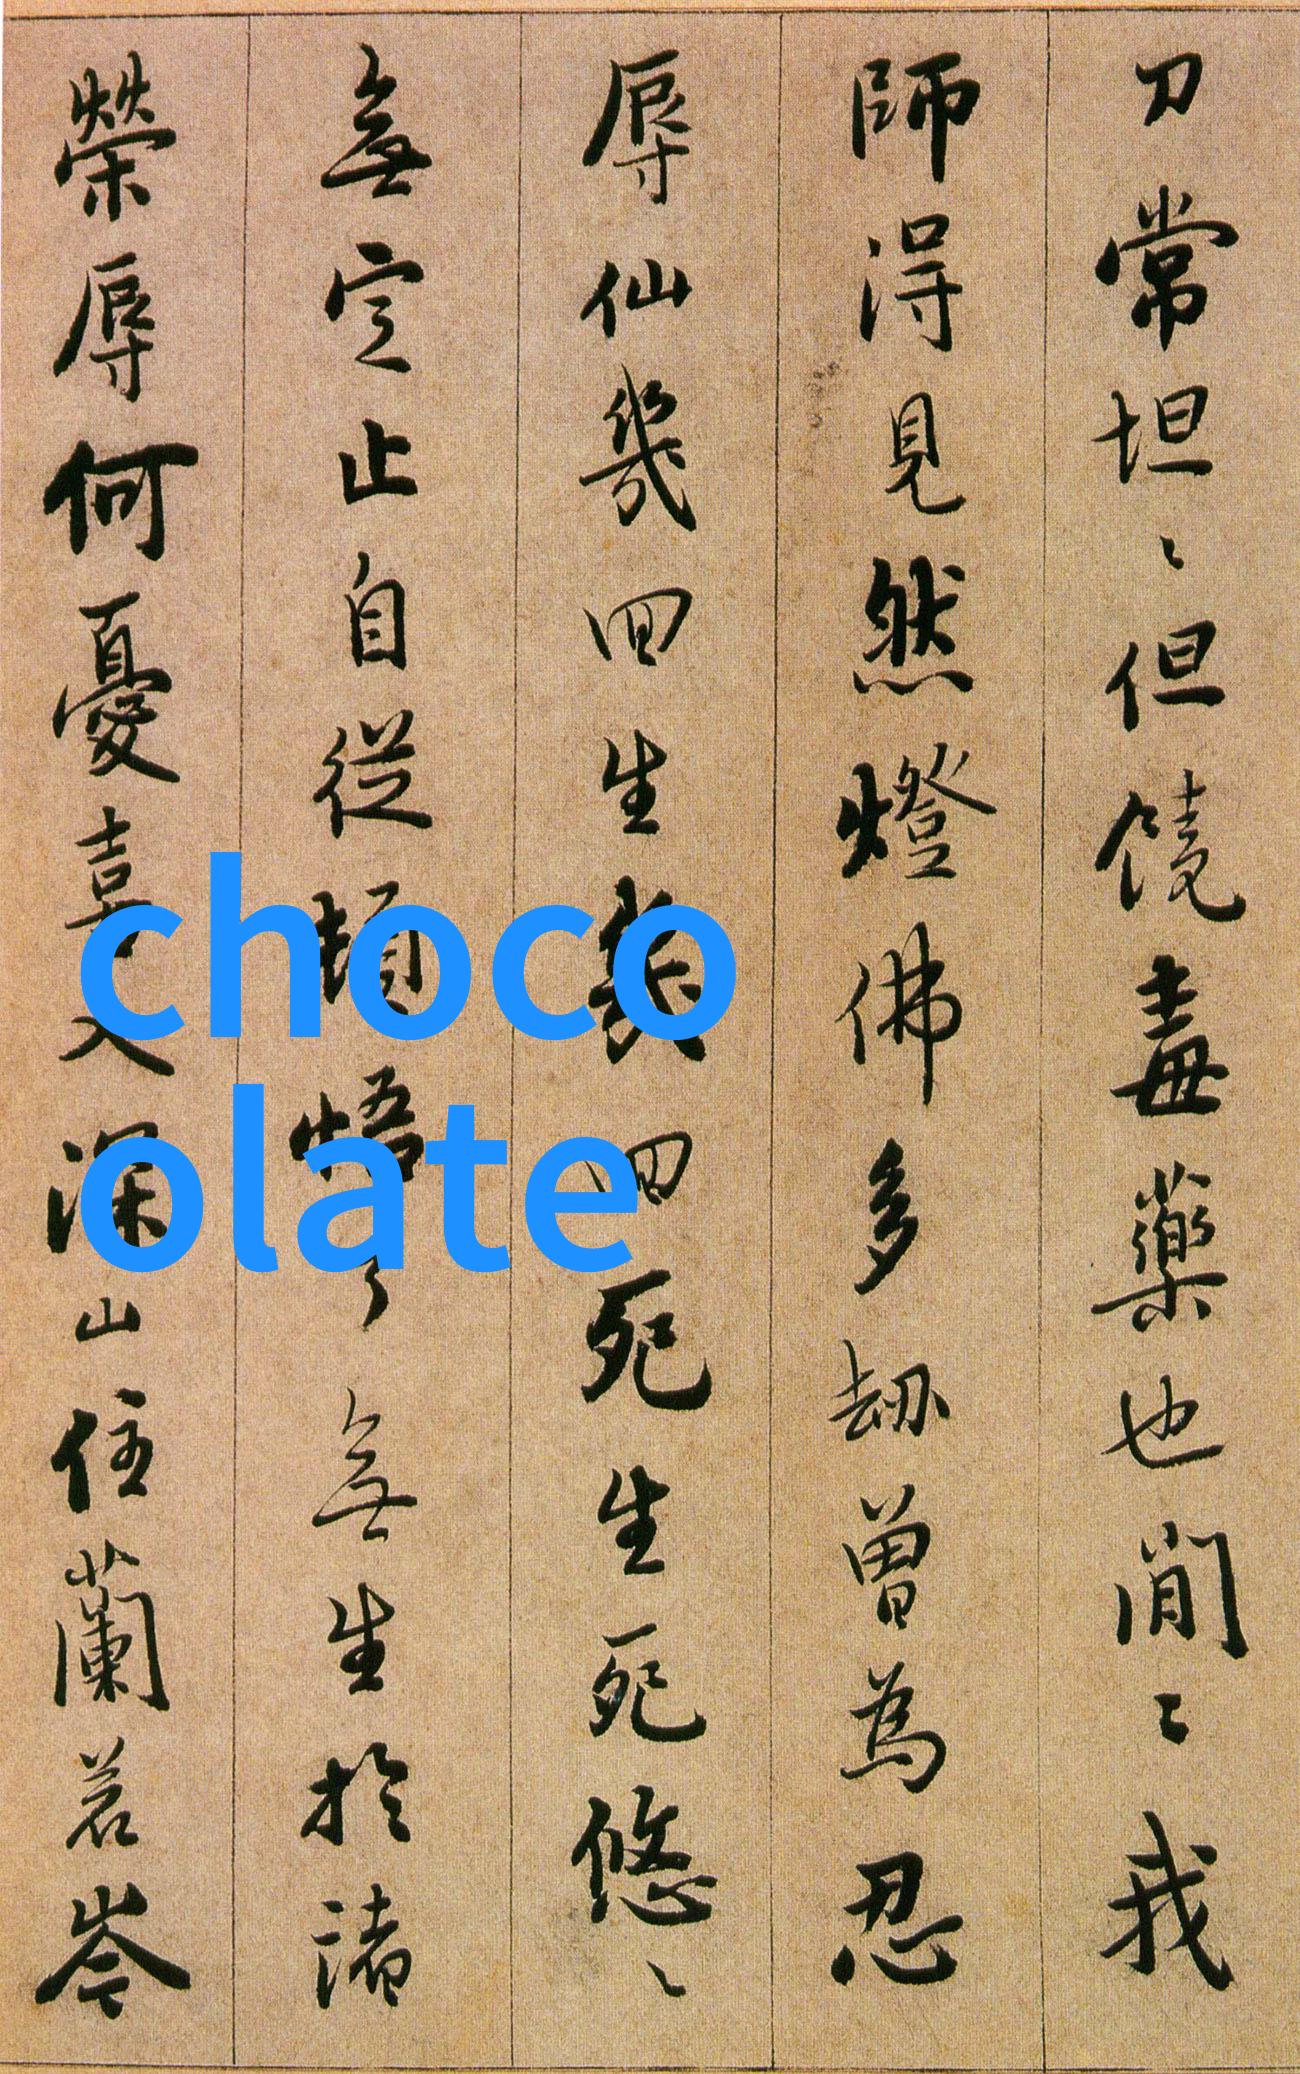 刀常坦〻但饒毒藥也閒〻我
師得見然燈佛多劫曾為忍
辱仙幾回生幾回死生死悠〻
無定止自從頓悟了無生於諸
榮辱何憂喜入深山住蘭若岑
choco
olate